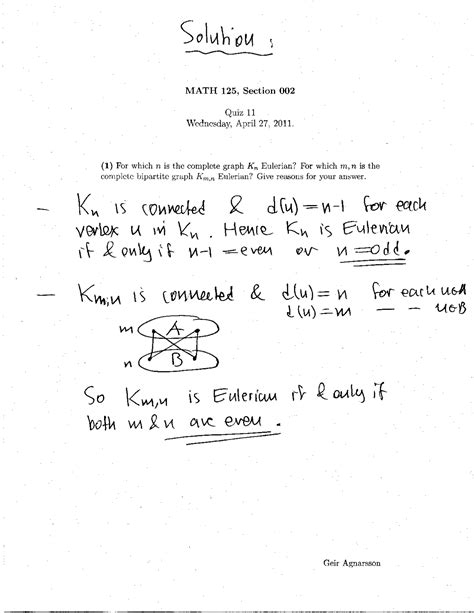 Solution:
MATH 125, Section 002
Quiz 11
Wednesday, April 27, 2011.
(1) For which n is the complete graph Kn Eulerian? For which m, n is the
complete bipartite graph Km,n Eulerian? Give reasons for your answer.
— Kn is connected & d(u) = n-1 for each
vertex u in Kn. Hence Kn is Eulerian
if & only if n-1 = even or n = odd.
— Km,n is connected & d(u) = n for each u∈A
d(u) = m — — u∈B
m A
n B
So Km,n is Eulerian if & only if
both m & n are even.
Geir Agnarsson